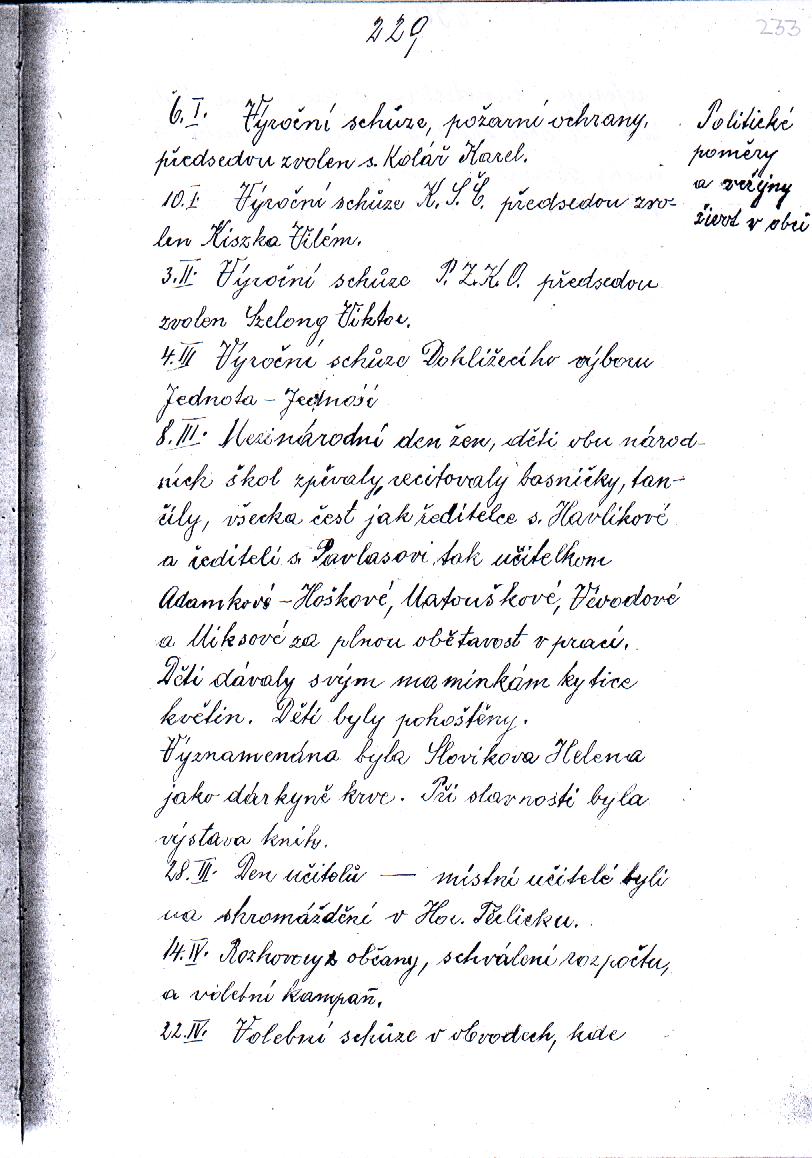 229
233
6.I. Výroční schůze, požární ochrany,
předsedou zvolen s. Kolář Karel.
10.I Výroční schůze K.S.Č. předsedou zvo-
len Kiszka Vilém.
3.II. Výroční schůze P.Z.K.O. předsedou
zvolen Szelong Viktor.
4.III Výroční schůze Dohlížecího výboru
Jednota – Jedność
8.III. Mezinárodní den žen, děti obu národ-
ních škol zpívaly, recitovaly básničky, tan-
čily, všecka čest jak ředitelce s. Havlíkové
a řediteli s. Pavlasovi tak učitelkom
Adamkové – Hoškové, Matouškové, Vévodové
a Miksové za plnou obětavost v práci.
Děti dávaly svým maminkám kytice
květin. Děti byly pohoštěny.
Vyznamenána byla Slovíkova Helena
jako dárkyně krve. Při slavnosti byla
výstava knih.
28.III. Den učitelů — místní učitelé byli
na shromáždění v Hor. Těrlicku.
14.IV. Rozhovory z občany, schválení rozpočtu,
a volební kampaň.
22.IV. Volební schůze v obvodech, kde
Politické
poměry
a veřejny
život v obci